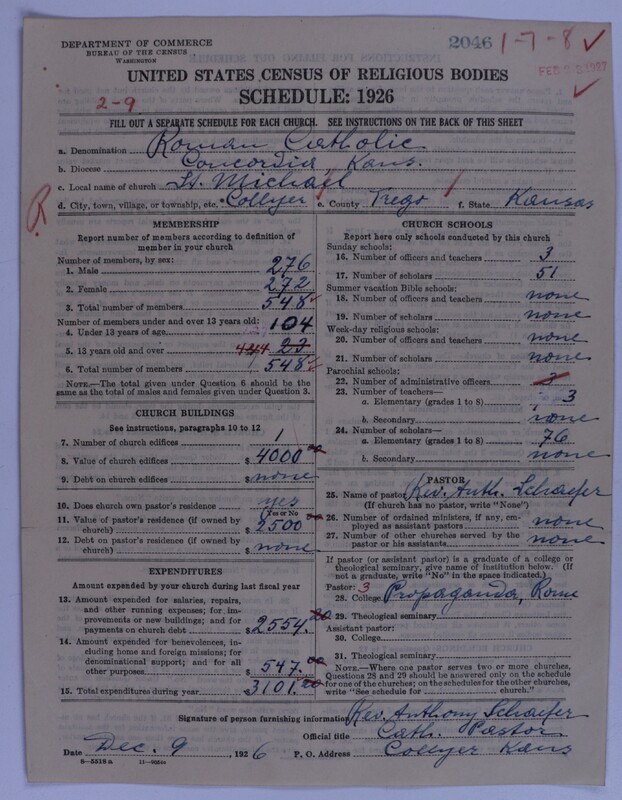 DEPARTMENT OF COMMERCE
BUREAU OF THE CENSUS
WASHINGTON
2046
1-7-8 ✓
FEB 1927
UNITED STATES CENSUS OF RELIGIOUS BODIES
SCHEDULE: 1926
2-9
FILL OUT A SEPARATE SCHEDULE FOR EACH CHURCH. SEE INSTRUCTIONS ON THE BACK OF THIS SHEET
a. Denomination Roman Catholic
b. Diocese Concordia, Kans.
c. Local name of church St. Michael
R
d. City, town, village, or township, etc. Collyer e. County Trego f. State Kansas
MEMBERSHIP
Report number of members according to definition of
member in your church
Number of members, by sex:
1. Male 276
2. Female 272
3. Total number of members 548 ✓
Number of members under and over 13 years old:
4. Under 13 years of age 104
5. 13 years old and over 444 23
6. Total number of members 548 ✓
NOTE.—The total given under Question 6 should be
same as the total of males and females given under Question 3.
CHURCH BUILDINGS
See instructions, paragraphs 10 to 12
7. Number of church edifices 1
8. Value of church edifices $ 4000 00
9. Debt on church edifices $ none
10. Does church own pastor's residence yes
Yes or No
11. Value of pastor's residence (if owned by
church) $ 2500 00
12. Debt on pastor's residence (if owned by
church) $ none
EXPENDITURES
Amount expended by your church during last fiscal year
13. Amount expended for salaries, repairs,
and other running expenses; for im-
provements or new buildings; and for
payments on church debt $ 2554.20
14. Amount expended for benevolences,
including home and foreign missions; for
denominational support; and for all
other purposes $ 547.00
15. Total expenditures during year $ 3101.20
CHURCH SCHOOLS
Report here only schools conducted by this church
Sunday schools:
16. Number of officers and teachers 3
17. Number of scholars 51
Summer vacation Bible schools:
18. Number of officers and teachers none
19. Number of scholars none
Week-day religious schools:
20. Number of officers and teachers none
21. Number of scholars none
Parochial schools:
22. Number of administrative officers 3
23. Number of teachers—
a. Elementary (grades 1 to 8) 3
b. Secondary none
24. Number of scholars—
a. Elementary (grades 1 to 8) 76
b. Secondary none
PASTOR
25. Name of pastor Rev. Anth. Schaefer
(If church has no pastor, write "None")
26. Number of ordained ministers, if any, em-
ployed as assistant pastors none
27. Number of other churches served by the
pastor or his assistants none
If pastor (or assistant pastor) is a graduate of a college or
theological seminary, give name of institution below. (If
not a graduate, write "No" in the space indicated.)
Pastor: 3
28. College Propaganda, Rome
29. Theological seminary
Assistant pastor:
30. College
31. Theological seminary
NOTE.—Where one pastor serves two or more churches,
Questions 28 and 29 should be answered only on the schedule
for one of the churches; on the schedules for the other churches,
write "See schedule for church."
Signature of person furnishing information Rev. Anthony Schaefer
Official title Cath. Pastor
Date Dec. 9 1926 P. O. Address Collyer Kans
8—5518a